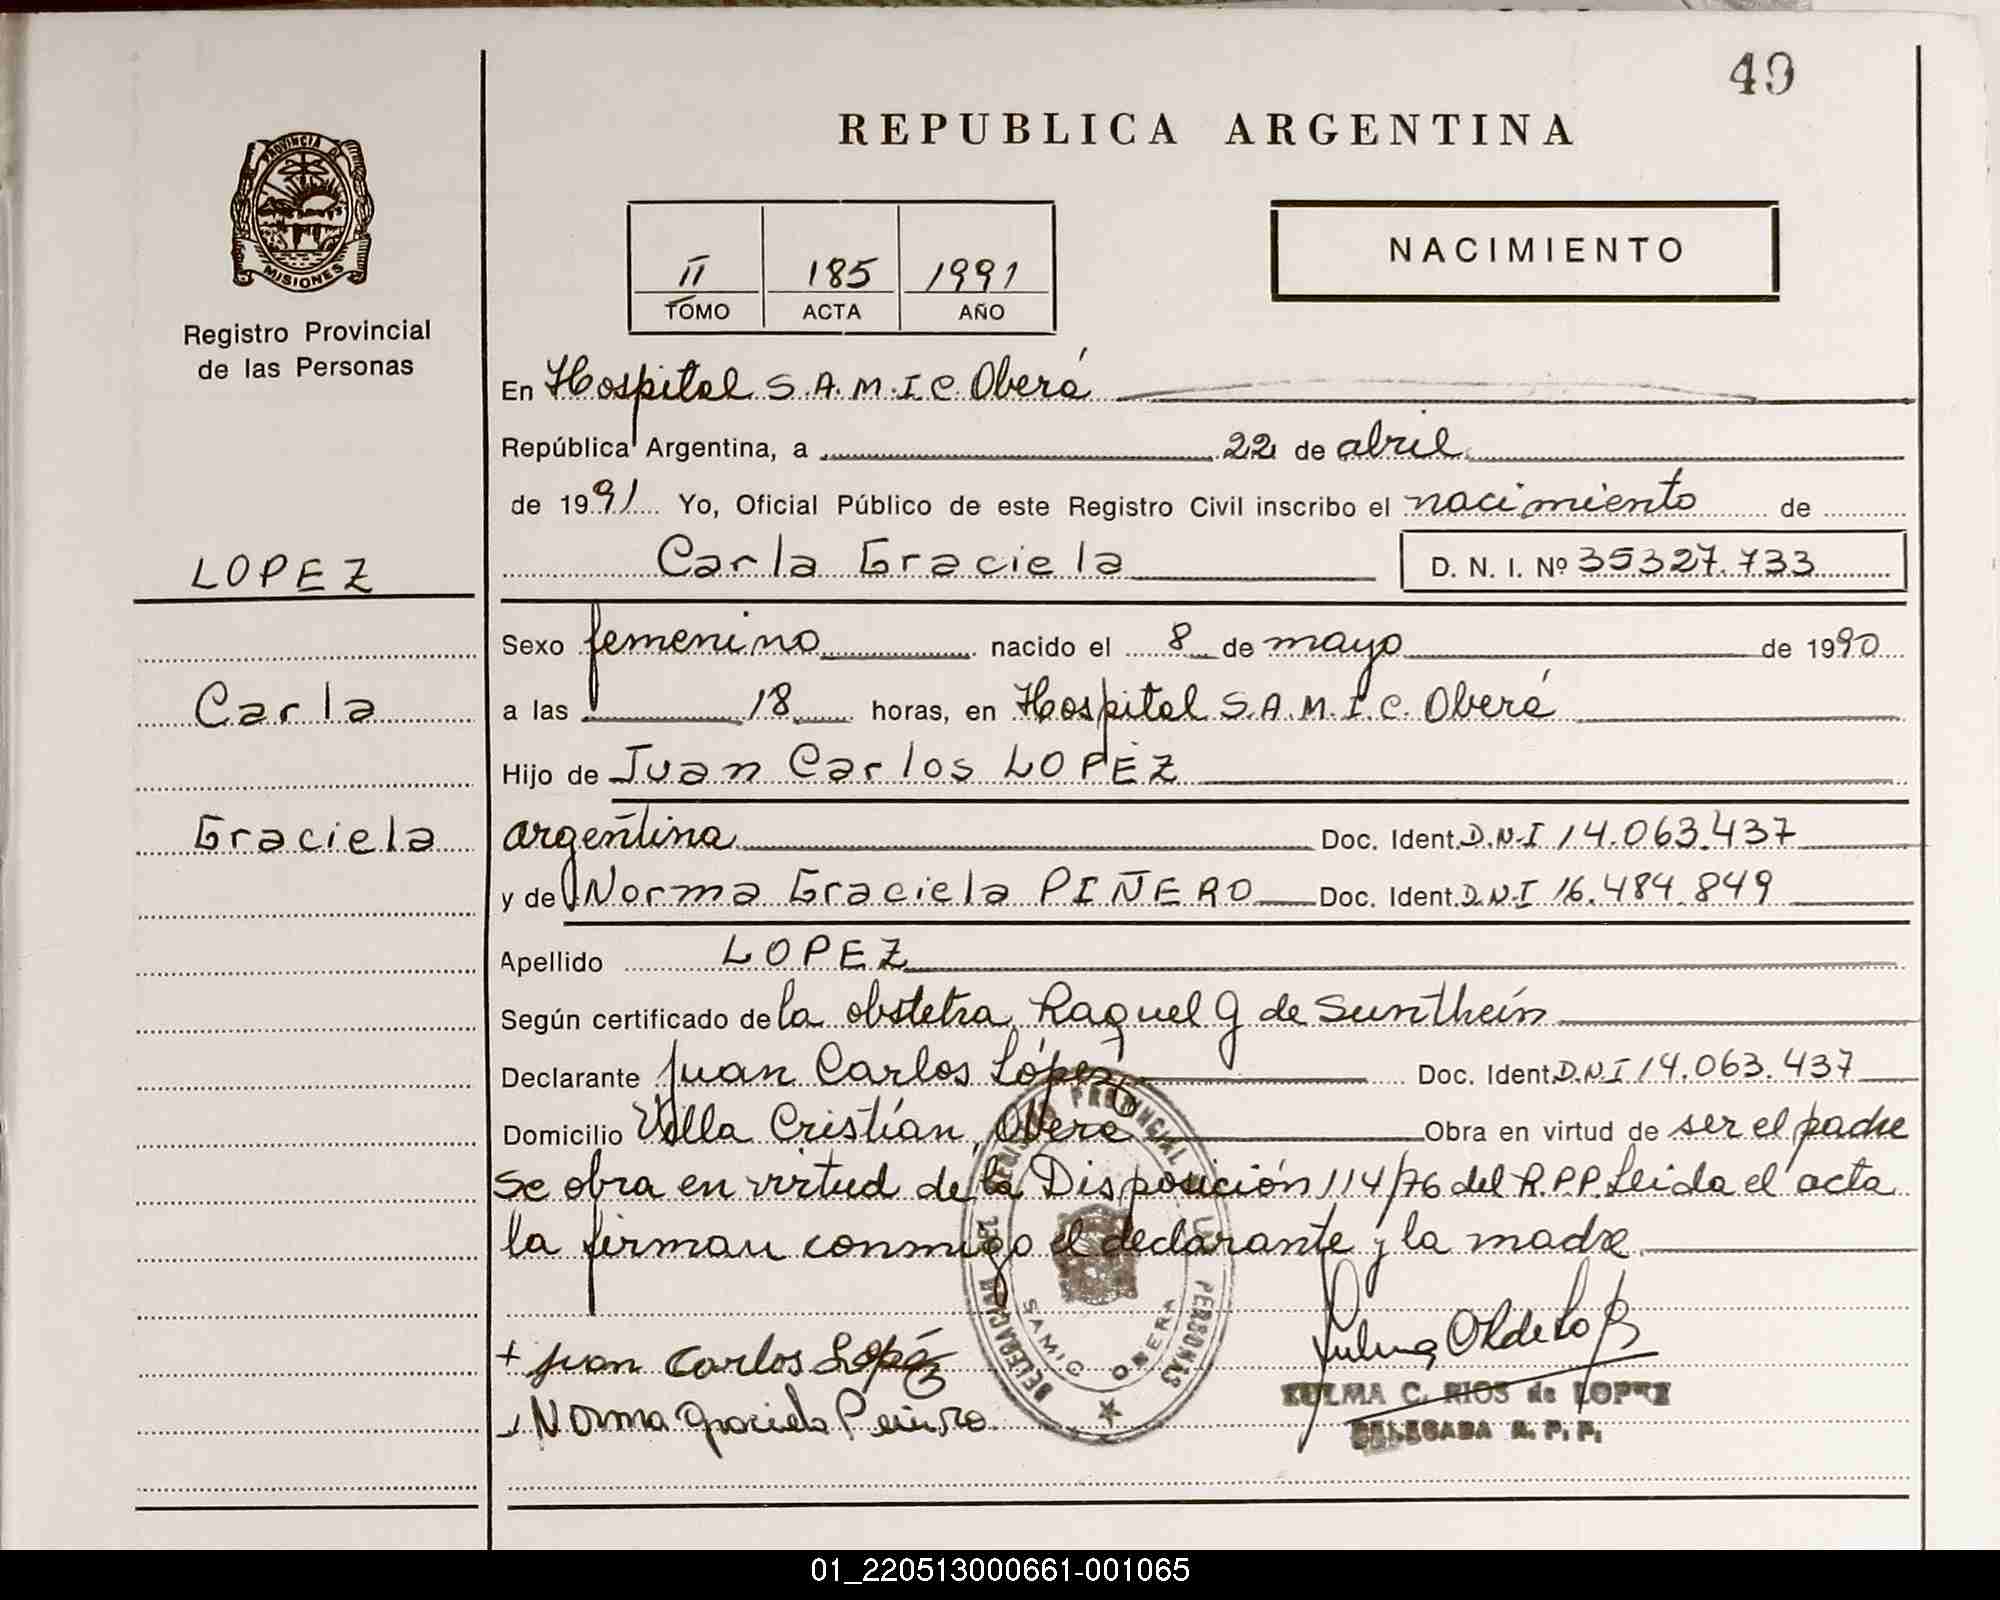 49
REPUBLICA ARGENTINA
PROVINCIA DE
MISIONES
Registro Provincial
de las Personas
II 185 1991
TOMO ACTA AÑO
NACIMIENTO
En Hospital S.A.M.I.C. Oberá
República Argentina, a 22 de abril
de 1991 Yo, Oficial Público de este Registro Civil inscribo el nacimiento de
Carla Graciela D. N. I. Nº 35327.733
LOPEZ
Carla
Graciela
Sexo femenino nacido el 8 de mayo de 1990
a las 18 horas, en Hospital S.A.M.I.C. Oberá
Hijo de Juan Carlos LOPEZ
argentina Doc. Ident. D.N.I 14.063.437
y de Norma Graciela PIÑERO Doc. Ident. D.N.I 16.484.849
Apellido LOPEZ
Según certificado de la obstetra Raquel G de Sunthein
Declarante Juan Carlos López Doc. Ident. D.N.I 14.063.437
Domicilio Villa Cristian, Oberá Obra en virtud de ser el padre
se obra en virtud de la Disposición 114/76 del R.P.P. Leida el acta
la firman conmigo el declarante y la madre
+ Juan Carlos Lopéz
Norma Graciela
DELEGACION DEL REGISTRO PROVINCIAL PERSONAS
SAMIC OBERA
ZULMA C. RIOS de LOPEZ
DELEGADA R. P. P.
01_220513000661-001065